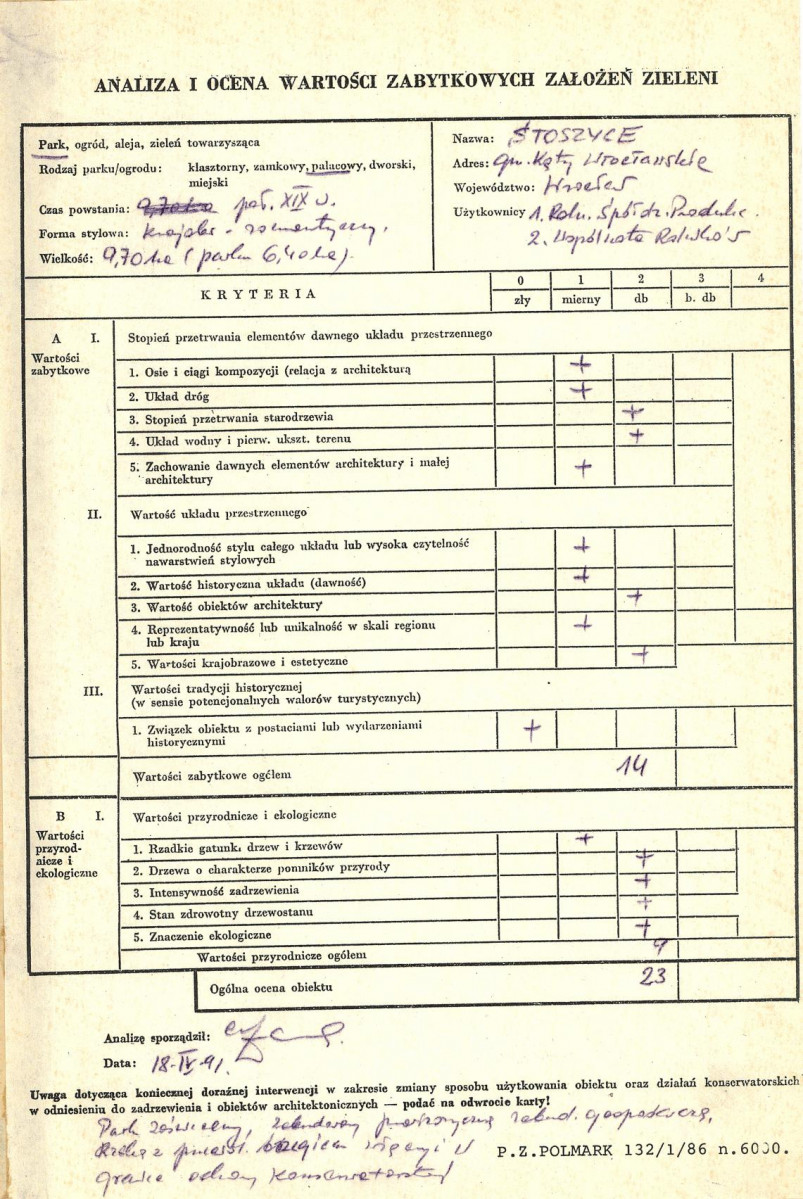 ANALIZA I OCENA WARTOŚCI ZABYTKOWYCH ZAŁOŻEŃ ZIELENI
Park, ogród, aleja, zieleń towarzysząca
Rodzaj parku/ogrodu: klasztorny, zamkowy, pałacowy, dworski,
miejski
Czas powstania: 9,70 ha poł. XIX w.
Forma stylowa: krajobr. - romantyczny.
Wielkość: 9,70 ha (parku 6,40 ha).
Nazwa: STOSZYCE
Adres: gm. Kąty Wrocławskie
Województwo: Wrocław
Użytkownicy 1. Roln. Spółdz. Produkc.
2. Wspólnota
KRYTERIA
0 1 2 3 4
zły mierny db b. db
A I. Stopień przetrwania elementów dawnego układu przestrzennego
Wartości
zabytkowe
1. Osie i ciągi kompozycji (relacja z architekturą +
2. Układ dróg +
3. Stopień przetrwania starodrzewia +
4. Układ wodny i pierw. ukszt. terenu +
5. Zachowanie dawnych elementów architektury i małej +
architektury
II. Wartość układu przestrzennego
1. Jednorodność stylu całego układu lub wysoka czytelność +
nawarstwień stylowych
2. Wartość historyczna układu (dawność) +
3. Wartość obiektów architektury +
4. Reprezentatywność lub unikalność w skali regionu +
lub kraju
5. Wartości krajobrazowe i estetyczne +
III. Wartości tradycji historycznej
(w sensie potencjonalnych walorów turystycznych)
1. Związek obiektu z postaciami lub wydarzeniami +
historycznymi
Wartości zabytkowe ogółem 14
B I. Wartości przyrodnicze i ekologiczne
Wartości
przyrod-
nicze i
ekologiczne
1. Rzadkie gatunki drzew i krzewów +
2. Drzewa o charakterze pomników przyrody +
3. Intensywność zadrzewienia +
4. Stan zdrowotny drzewostanu +
5. Znaczenie ekologiczne +
Wartości przyrodnicze ogółem 9
Ogólna ocena obiektu 23
Analizę sporządził:
Data: 18-IV-91.
Uwaga dotycząca koniecznej doraźnej interwencji w zakresie zmiany sposobu użytkowania obiektu oraz działań konserwatorskich
w odniesieniu do zadrzewienia i obiektów architektonicznych — podać na odwrocie karty!
Park zabudowany zabud. gospodarczą,
i
granice ochrony konserwatorskiej
P.Z.POLMARK 132/1/86 n.6000.